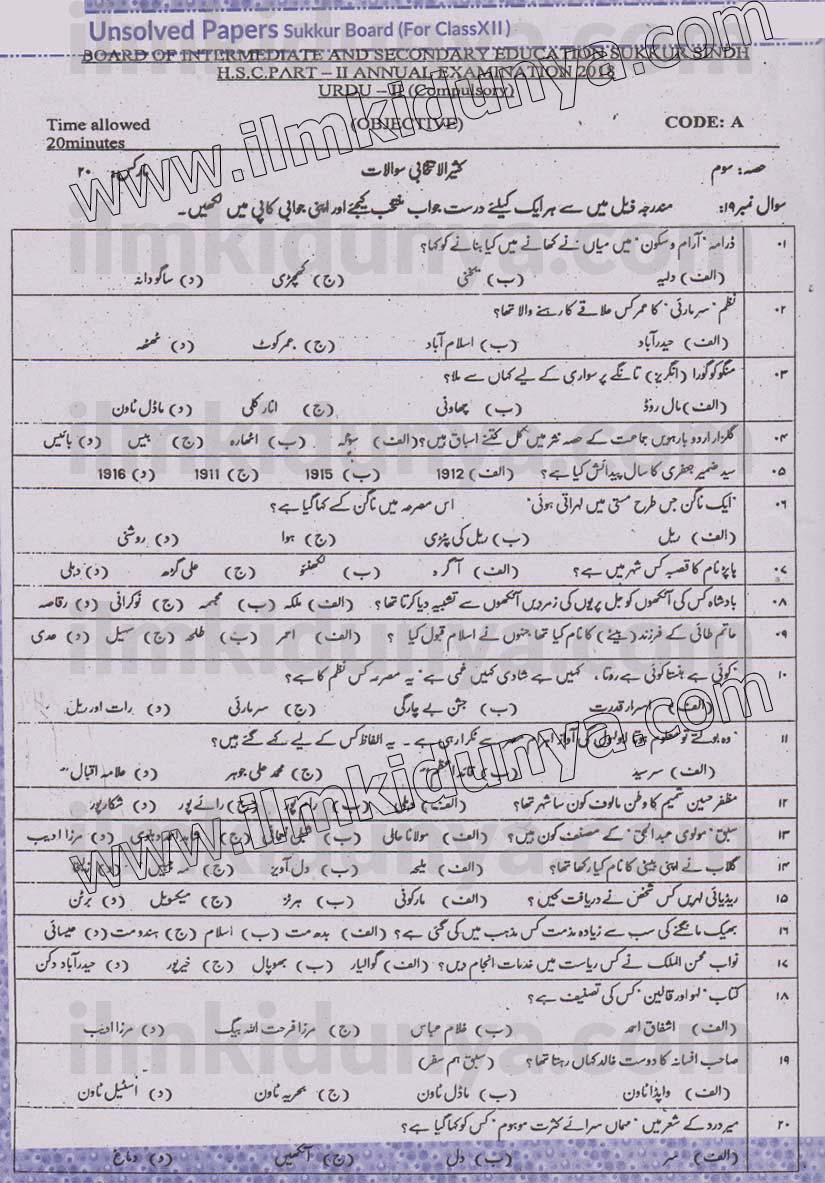 Unsolved Papers Sukkur Board (For ClassXII)
BOARD OF INTERMEDIATE AND SECONDARY EDUCATION SUKKUR SINDH
H.S.C.PART – II ANNUAL EXAMINATION 2018
URDU – II (Compulsory)
Time allowed (OBJECTIVE) CODE: A
20minutes
حصہ: سوم کثیر الانتخابی سوالات مارکس: ۲۰
سوال نمبر۱۹: مندرجہ ذیل میں سے ہر ایک کیلئے درست جواب منتخب کیجئے اور اپنی جوابی کاپی میں لکھیں۔
۰۱ ڈرامہ "آرام و سکون" میں میاں نے کھانے میں کیا بنانے کو کہا؟
(الف) دلیہ (ب) یخنی (ج) کھچڑی (د) ساگودانہ
۰۲ نظم "سرمارئی" کا عمر کس علاقے کا رہنے والا تھا؟
(الف) حیدرآباد (ب) اسلام آباد (ج) عمرکوٹ (د) ٹھٹھہ
۰۳ منگو کو گورا (انگریز) تانگے پر سواری کے لیے کہاں سے ملا؟
(الف) مال روڈ (ب) چھاونی (ج) انارکلی (د) ماڈل ٹاون
۰۴ گلزار اردو بارہویں جماعت کے حصہ نثر میں کل کتنے اسباق ہیں؟ (الف) سولہ (ب) اٹھارہ (ج) بیس (د) بائیس
۰۵ سید ضمیر جعفری کا سال پیدائش کیا ہے؟ (الف) 1912 (ب) 1915 (ج) 1911 (د) 1916
۰۶ "ایک ناگن جس طرح مستی میں لہراتی ہوئی" اس مصرعہ میں ناگن کسے کہا گیا ہے؟
(الف) ریل (ب) ریل کی پٹڑی (ج) ہوا (د) روشنی
۰۷ ہاپڑ نام کا قصبہ کس شہر میں ہے؟ (الف) آگرہ (ب) لکھنئو (ج) علی گڑھ (د) دہلی
۰۸ بادشاہ کس کی آنکھوں کو جل پریوں کی زمردیں آنکھوں سے تشبیہ دیا کرتا تھا؟ (الف) ملکہ (ب) مجسمہ (ج) نوکرانی (د) رقاصہ
۰۹ حاتم طائی کے فرزند (بیٹے) کا نام کیا تھا جنہوں نے اسلام قبول کیا ؟ (الف) احمر (ب) طلحہ (ج) سہیل (د) عدی
۱۰ "کوئی ہے ہنستا کوئی ہے روتا ، کہیں ہے شادی کہیں غمی ہے" یہ مصرعہ کس نظم کا ہے؟
(الف) اسرار قدرت (ب) جشن بے چارگی (ج) سرمارئی (د) رات اور ریل
۱۱ "وہ بولتے تو معلوم ہوتا بولہول کی آواز اہرام مصر سے ٹکرا رہی ہے ۔ یہ الفاظ کس کے لیے کہے گئے ہیں؟
(الف) سرسید (ب) قائداعظم (ج) محمد علی جوہر (د) علامہ اقبال
۱۲ مظفر حسین شمیم کا وطن مالوف کون سا شہر تھا؟ (الف) دہلی (ب) رام پور (ج) رائے پور (د) شکارپور
۱۳ سبق "مولوی عبدالحق" کے مصنف کون ہیں؟ (الف) مولانا حالی (ب) شبلی نعمانی (ج) شاہد احمد دہلوی (د) مرزا ادیب
۱۴ گلاب نے اپنی بیٹی کا نام کیا رکھا تھا؟ (الف) ملیحہ (ب) دل آویز (ج) (د)
۱۵ ریڈیائی لہریں کس شخص نے دریافت کیں؟ (الف) مارکونی (ب) ہرٹز (ج) میکسویل (د) برٹن
۱۶ بھیک مانگنے کی سب سے زیادہ مذمت کس مذہب میں کی گئی ہے؟ (الف) بدھ مت (ب) اسلام (ج) ہندومت (د) عیسائی
۱۷ نواب محسن الملک نے کس ریاست میں خدمات انجام دیں؟ (الف) گوالیار (ب) بھوپال (ج) خیرپور (د) حیدرآباد دکن
۱۸ کتاب "لہو اور قالین" کس کی تصنیف ہے؟
(الف) اشفاق احمد (ب) غلام عباس (ج) مرزا فرحت اللہ بیگ (د) مرزا ادیب
۱۹ صاحب افسانہ کا دوست خالد کہاں رہتا تھا؟ (سبق ہم سفر)
(الف) واپڈا ٹاون (ب) ماڈل ٹاون (ج) بحریہ ٹاون (د) اسٹیل ٹاون
۲۰ میر درد کے شعر میں "مہماں سرائے کثرت موہوم" کس کو کہا گیا ہے؟
(الف) سر (ب) دل (ج) آنکھیں (د) دماغ
www.ilmkidunya.com
www.ilmkidunya.com
ilmkidunya.com
ilmkidunya.com
ilmkidunya.com
ilmkidunya.com
ilmkidunya.com